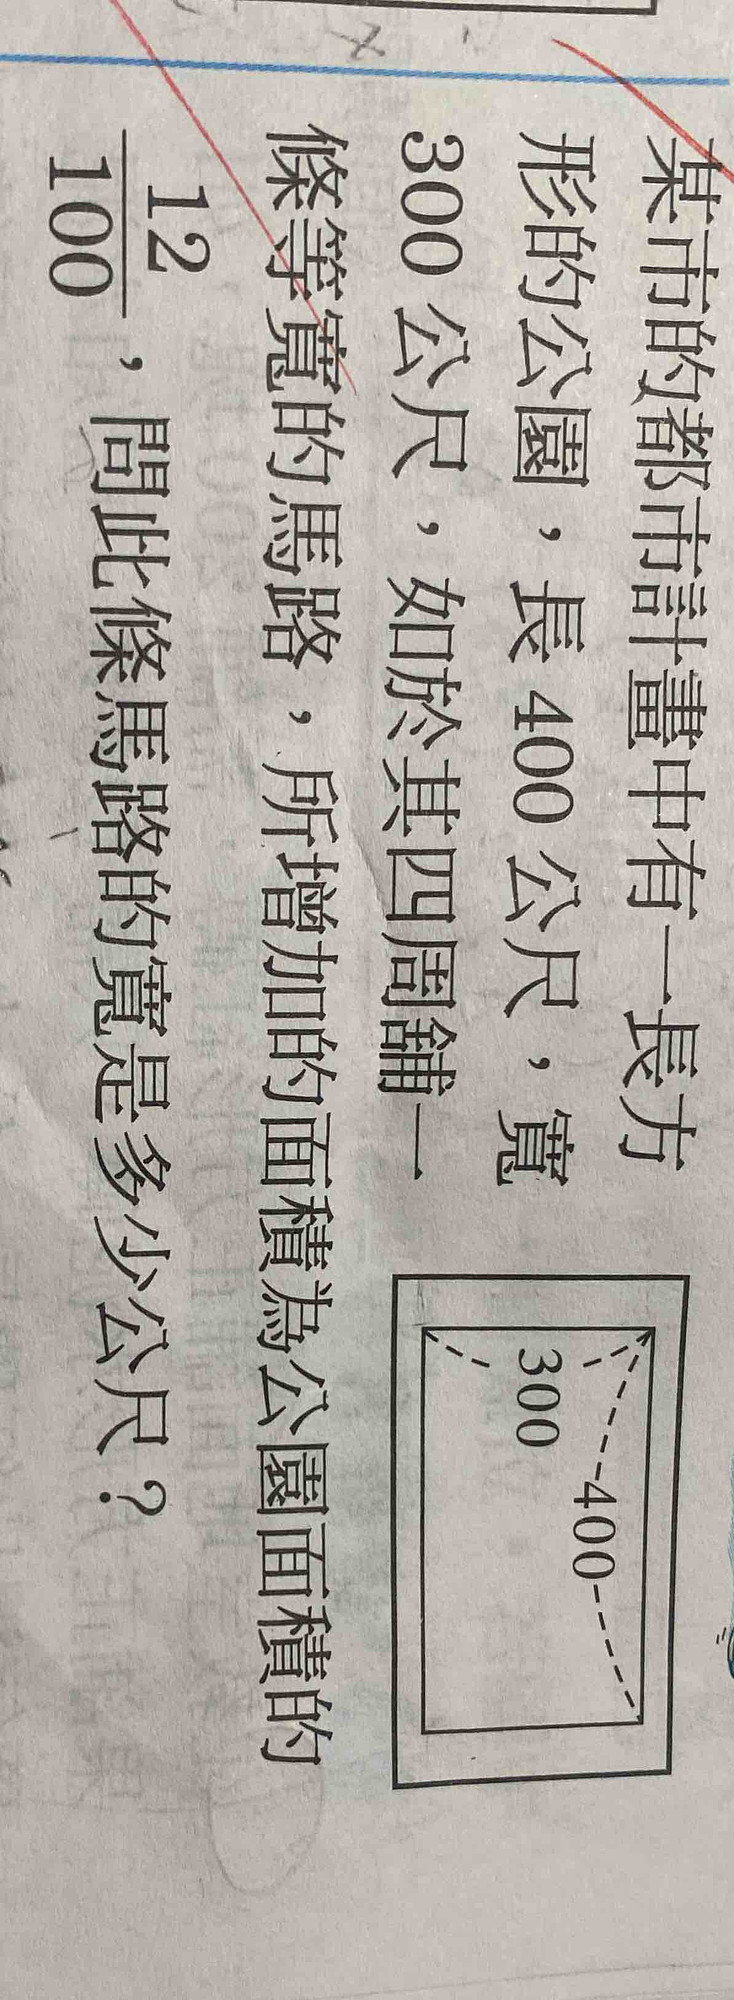 某市的都市計畫中有一長方
形的公園，長 400 公尺，寬
300 公尺，如於其四周舖一
條等寬的馬路，所增加的面積為公園面積的
12
100
，問此條馬路的寬是多少公尺？
400
300